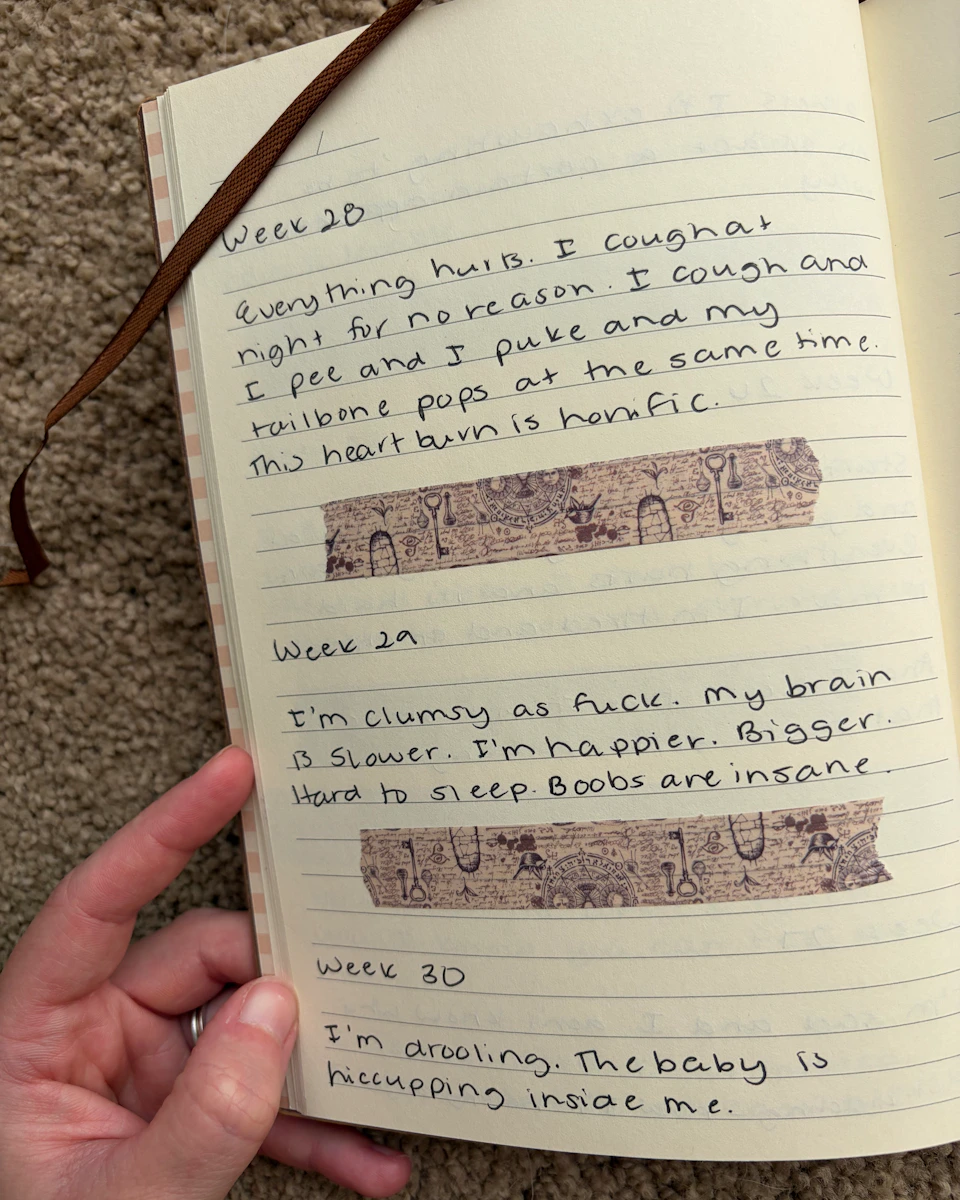 Week 28
Everything hurts. I cough at
night for no reason. I cough and
I pee and I puke and my
tailbone pops at the same time.
This heartburn is horrific.
Week 29
I'm clumsy as fuck. My brain
is slower. I'm happier. Bigger.
Hard to sleep. Boobs are insane.
Week 30
I'm drooling. The baby is
hiccupping inside me.